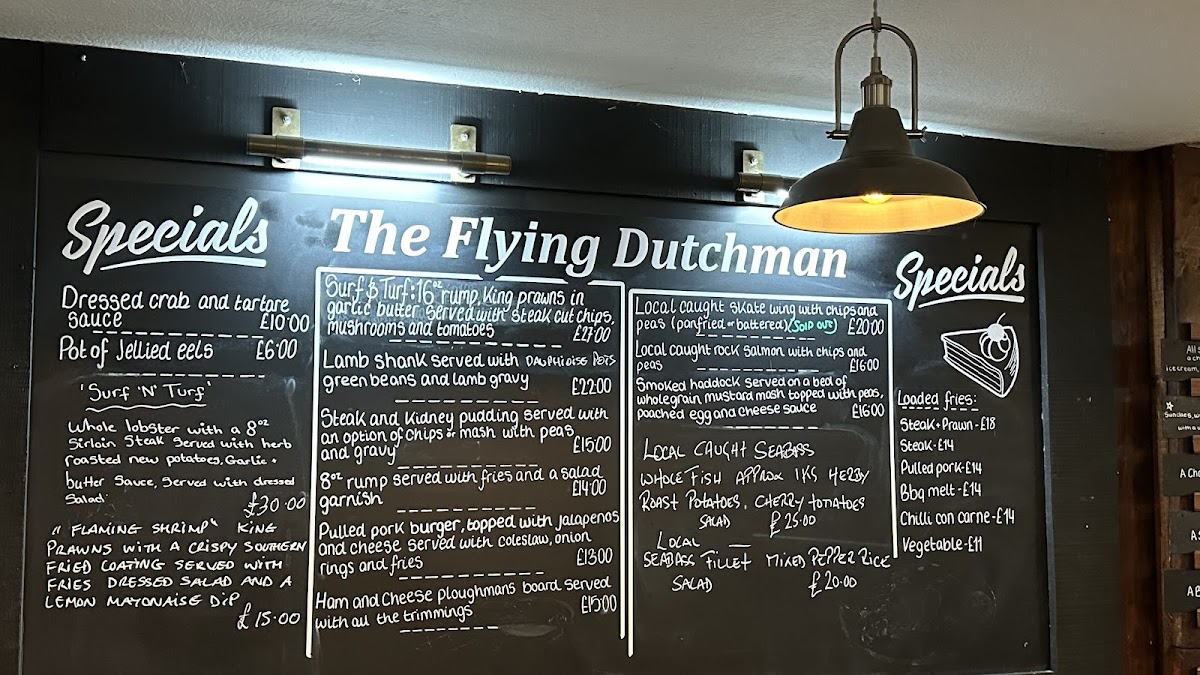 Specials
Dressed crab and tartare
sauce £10.00
Pot of Jellied eels £6.00
'Surf 'N' Turf'
Whole lobster with a 8oz
Sirloin Steak Served with herb
roasted new potatoes, Garlic +
butter Sauce, Served with dressed
Salad. £30.00
"FLAMING SHRIMP" KING
PRAWNS WITH A CRISPY SOUTHERN
FRIED COATING SERVED WITH
FRIES DRESSED SALAD AND A
LEMON MAYONAISE DIP
£15.00
The Flying Dutchman
Surf & Turf: 16oz rump, King prawns in
garlic butter served with steak cut chips,
mushrooms and tomatoes £27.00
Lamb shank served with DAUPHIOISS POTS
green beans and lamb gravy £22.00
Steak and Kidney pudding served with
an option of chips or mash with peas
and gravy £15.00
8oz rump served with fries and a salad
garnish £14.00
Pulled pork burger, topped with jalapenos
and cheese served with coleslaw, onion
rings and fries £13.00
Ham and Cheese ploughmans board served
with all the trimmings £15.00
Local caught skate wing with chips and
peas (panfried or battered) (SOLD OUT) £20.00
Local caught rock salmon with chips and
peas £16.00
Smoked haddock served on a bed of
wholegrain mustard mash topped with peas,
poached egg and cheese sauce £16.00
LOCAL CAUGHT SEABASS
WHOLE FISH APPROX 1KG HERBY
ROAST POTATOES, CHERRY TOMATOES
SALAD £25.00
LOCAL
SEABASS FILLET MIXED PEPPER RICE
SALAD £20.00
Specials
Loaded fries:
Steak + Prawn - £18
Steak - £14
Pulled pork - £14
Bbq melt - £14
Chilli con carne - £14
Vegetable - £11
ice cream,